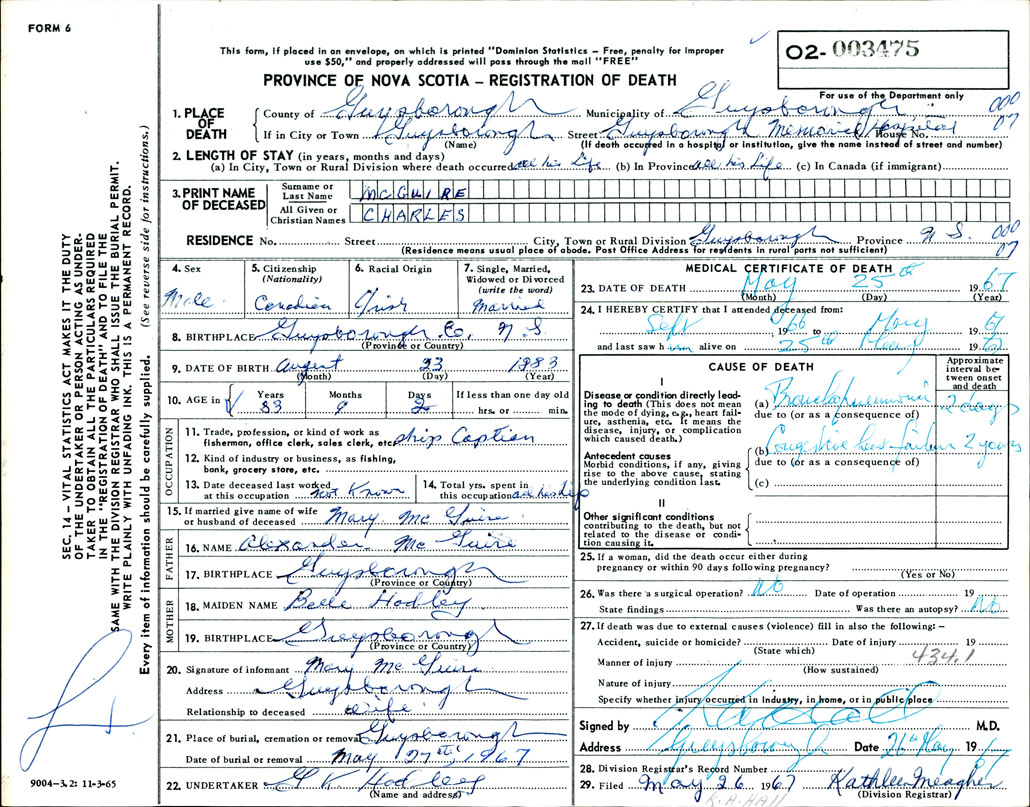 FORM 6
This form, if placed in an envelope, on which is printed "Dominion Statistics – Free, penalty for improper
use $50," and properly addressed will pass through the mail "FREE"
02- 003475
For use of the Department only
PROVINCE OF NOVA SCOTIA – REGISTRATION OF DEATH
000
07
1. PLACE OF DEATH
County of Guysborough Municipality of Guysborough
If in City or Town Guysborough Street Guysborough Memorial Hospital House No.
(Name) (If death occurred in a hospital or institution, give the name instead of street and number)
2. LENGTH OF STAY (in years, months and days)
(a) In City, Town or Rural Division where death occurred all his Life (b) In Province all his Life (c) In Canada (if immigrant)
3. PRINT NAME OF DECEASED
Surname or Last Name MCGUIRE
All Given or Christian Names CHARLES
RESIDENCE No. Street City, Town or Rural Division Guysborough Province N S.
000
07
(Residence means usual place of abode. Post Office Address for residents in rural parts not sufficient)
4. Sex Male
5. Citizenship (Nationality) Canadian
6. Racial Origin Irish
7. Single, Married, Widowed or Divorced (write the word) Married
8. BIRTHPLACE Guysborough Co. N S
(Province or Country)
9. DATE OF BIRTH August 23 1883
(Month) (Day) (Year)
10. AGE in Years 83 Months 9 Days 2 If less than one day old hrs. or min.
OCCUPATION
11. Trade, profession, or kind of work as
fisherman, office clerk, sales clerk, etc. ship Captien
12. Kind of industry or business, as fishing,
bank, grocery store, etc.
13. Date deceased last worked
at this occupation not Known
14. Total yrs. spent in
this occupation all his life
15. If married give name of wife
or husband of deceased Mary Mc Guire
FATHER
16. NAME Alexander Mc Guire
17. BIRTHPLACE Guysborough
(Province or Country)
MOTHER
18. MAIDEN NAME Belle Hadley
19. BIRTHPLACE Guysborough
(Province or Country)
20. Signature of informant Mary Mc Guire
Address Guysborough
Relationship to deceased wife
21. Place of burial, cremation or removal Guysborough
Date of burial or removal May 27th, 1967
22. UNDERTAKER G K Hadley
(Name and address)
MEDICAL CERTIFICATE OF DEATH
23. DATE OF DEATH May 25th 1967
(Month) (Day) (Year)
24. I HEREBY CERTIFY that I attended deceased from:
Sept 1966 to May 1967
and last saw him alive on 25th May 1967
CAUSE OF DEATH
Approximate interval between onset and death
I
Disease or condition directly leading to death (This does not mean
the mode of dying, e.g., heart failure, asthenia, etc. It means the
disease, injury, or complication
which caused death.)
(a) Bronchopneumonia 2 days
due to (or as a consequence of)
Antecedent causes
Morbid conditions, if any, giving
rise to the above cause, stating
the underlying condition last.
(b) Congestive heart failure 2 years
due to (or as a consequence of)
(c)
II
Other significant conditions
contributing to the death, but not
related to the disease or condition causing it.
25. If a woman, did the death occur either during
pregnancy or within 90 days following pregnancy?
(Yes or No)
26. Was there a surgical operation? No Date of operation 19
State findings Was there an autopsy? No
27. If death was due to external causes (violence) fill in also the following:–
Accident, suicide or homicide? Date of injury 19
(State which) 434.1
Manner of injury
(How sustained)
Nature of injury
Specify whether injury occurred in industry, in home, or in public place
Signed by M.D.
Address Guysborough Date 26th May 1967
28. Division Registrar's Record Number
29. Filed May 26 1967 Kathleen Meagher
(Division Registrar)
K.A. HALL
SEC. 14 – VITAL STATISTICS ACT MAKES IT THE DUTY
OF THE UNDERTAKER OR PERSON ACTING AS UNDER-
TAKER TO OBTAIN ALL THE PARTICULARS REQUIRED
IN THE "REGISTRATION OF DEATH" AND TO FILE THE
SAME WITH THE DIVISION REGISTRAR WHO SHALL ISSUE THE BURIAL PERMIT.
WRITE PLAINLY WITH UNFADING INK. THIS IS A PERMANENT RECORD.
Every item of information should be carefully supplied. (See reverse side for instructions.)
9004–3.2: 11-3-65